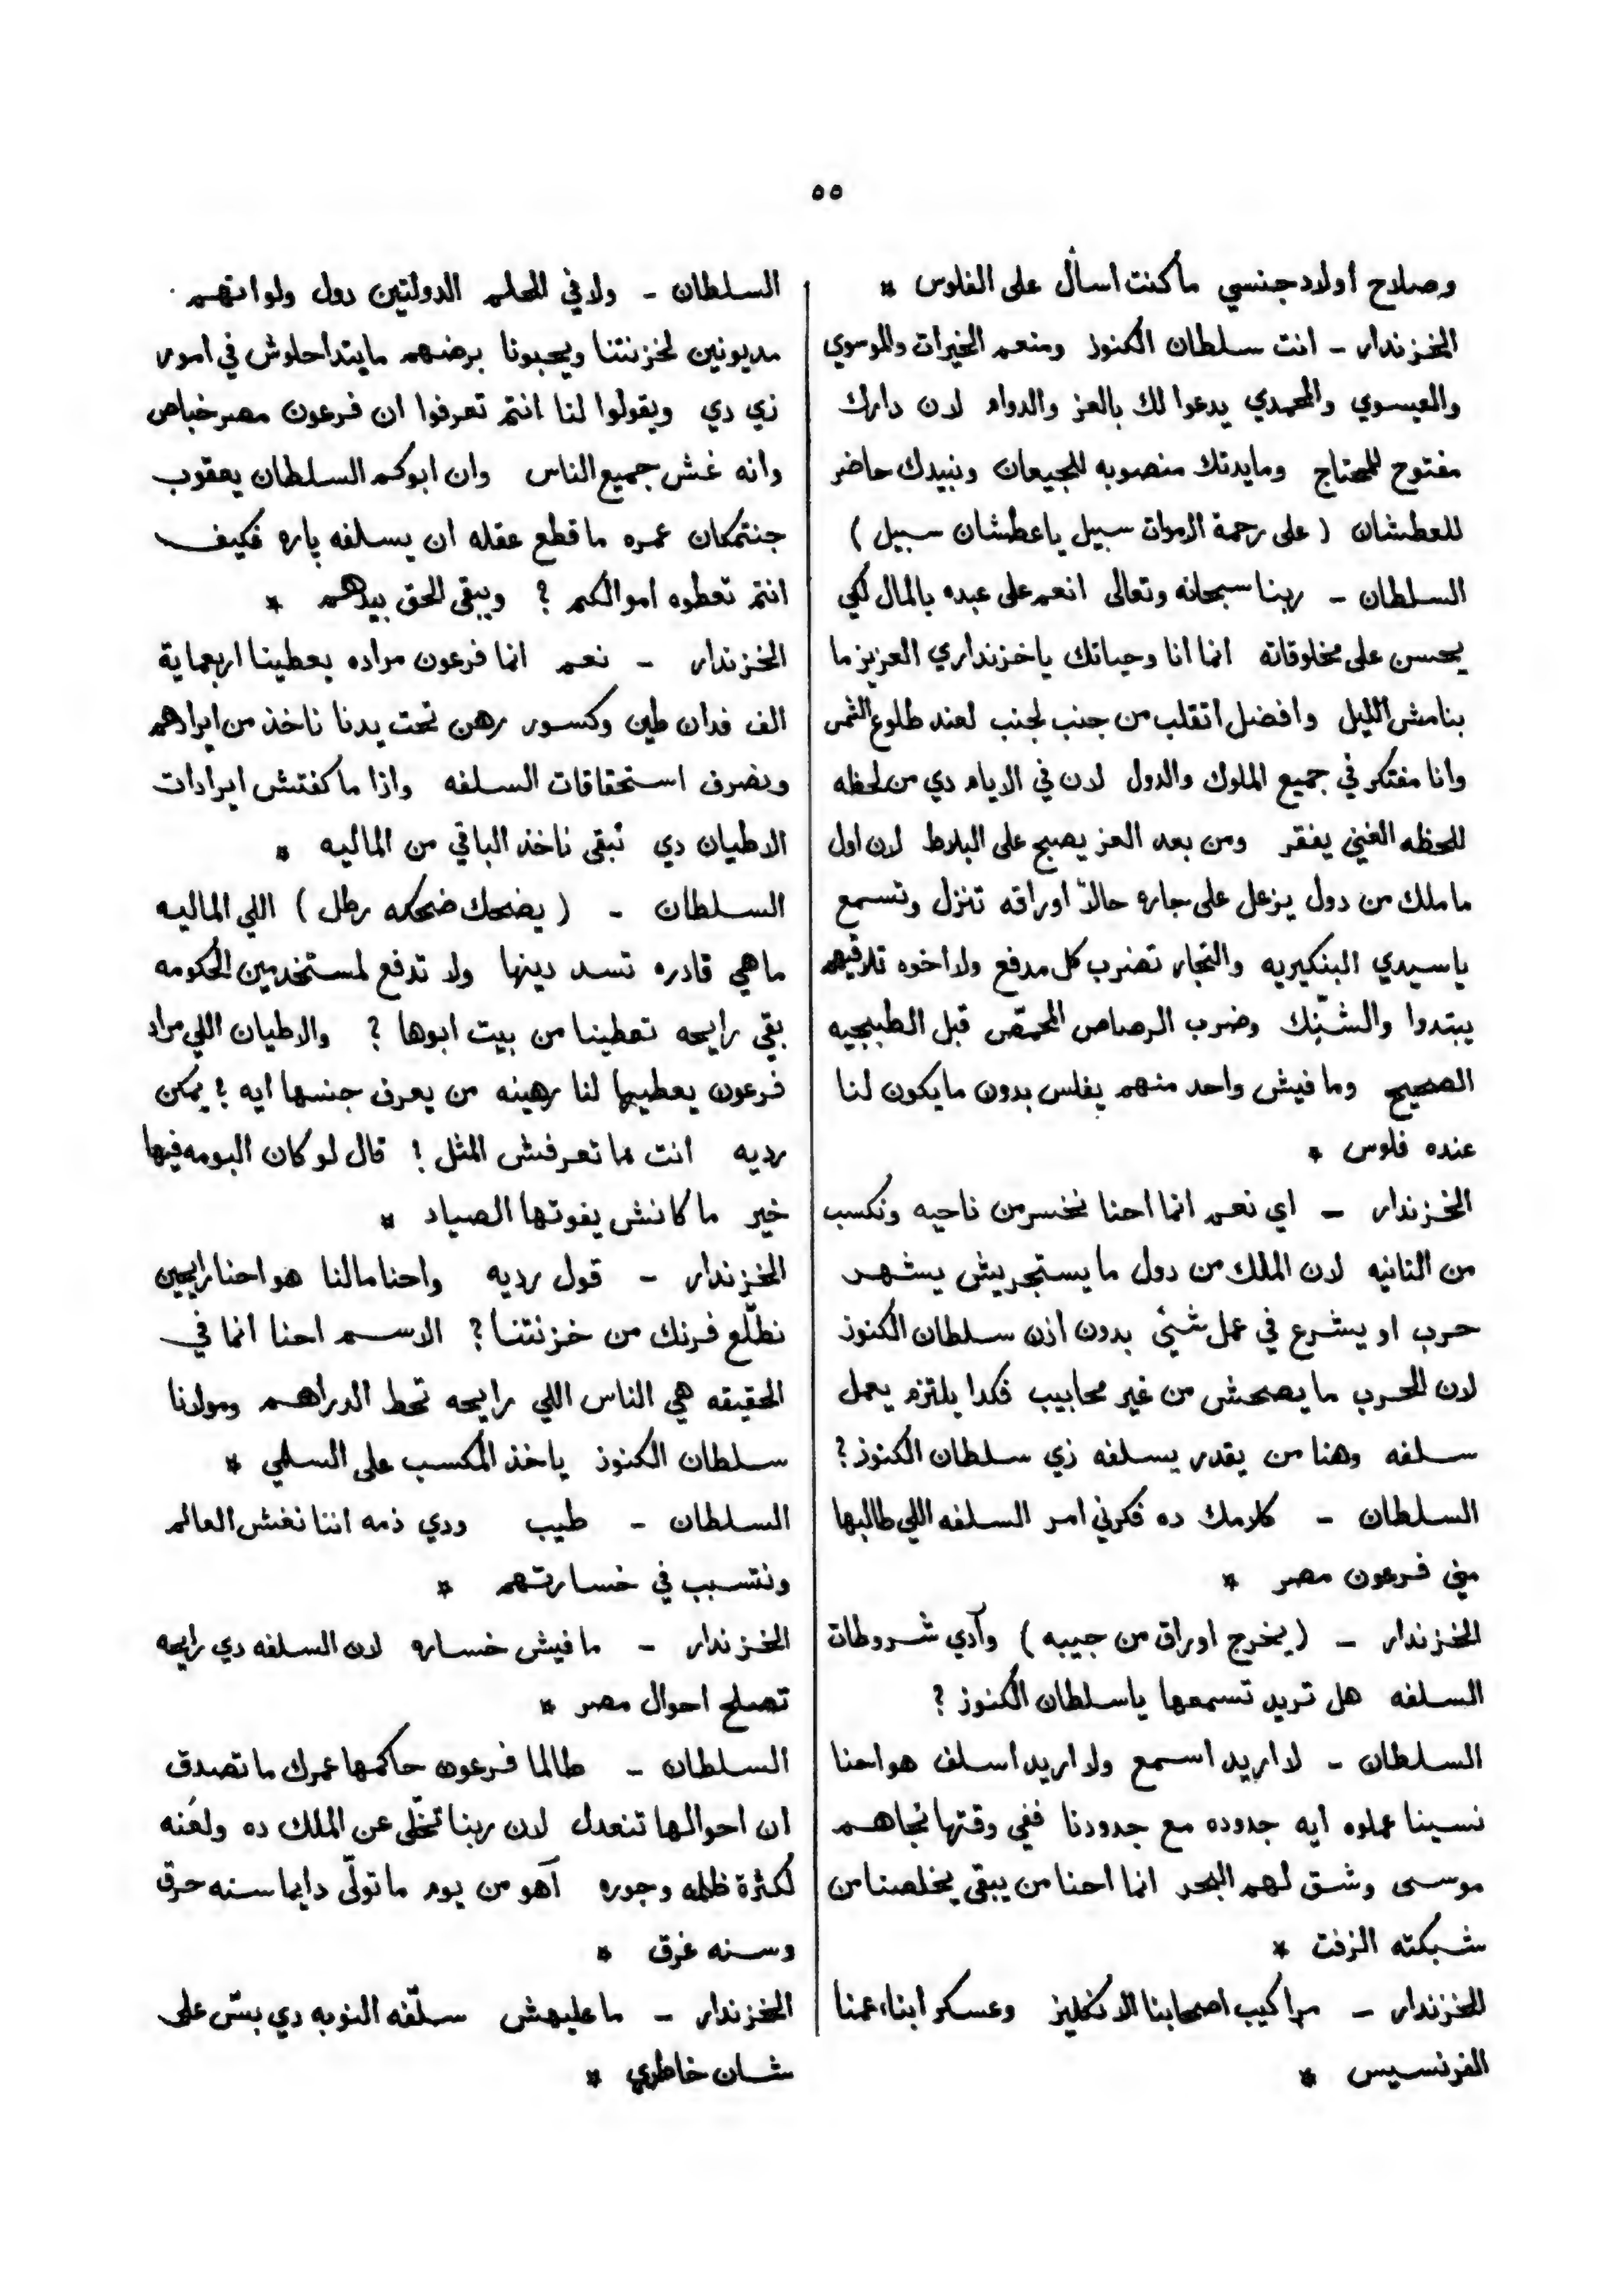 ٥٥
وصلاح اولاد جنسي ماكنت اسأل على الفلوس *
الخزندار ـ انت سلطان الكنوز ومنعم الخيرات والموسوي
والعيسوي والمحمدي يدعوا لك بالعز والدوام لان دارك
مفتوح للمحتاج ومايدتك منصوبه للجيعان ونبيدك حاضر
للعطشان ( على رحمة الاموات سبيل ياعطشان سبيل )
السلطان ـ ربنا سبحانه وتعالى انعم على عبده بالمال لكي
يحسن على مخلوقاته انما انا وحياتك ياخزنداري العزيز ما
بنامش الليل وافضل اتقلب من جنب لجنب لعند طلوع الشمس
وانا مفتكر في جميع الملوك والدول لان في الايام دي من لحظه
للحظه الغني يفقر ومن بعد العز يصبح على البلاط لان اول
ما ملك من دول يزعل على جاره حالاً اوراقه تنزل وتسمع
ياسيدي البنكيريه والتجار تضرب كل مدفع ولا اخوه تلاقيهم
يبتدوا والشنّك وضرب الرصاص المحمّص قبل الطبجيه
الصحيح ومافيش واحد منهم يفلس بدون مايكون لنا
عنده فلوس *
الخزندار ـ اي نعم انما احنا نخسر من ناحيه ونكسب
من الثانيه لان الملك من دول ما يستجريش يشهر
حرب او يشرع في عمل شيئ بدون اذن سلطان الكنوز
لان الحرب ما يصحش من غير محابيب فكدا يلتزم يعمل
سلفه وهنا من يقدر يسلفه زي سلطان الكنوز ?
السلطان ـ كلامك ده فكرني امر السلفه اللي طالبها
مني فرعون مصر *
الخزندار ـ ( يخرج اوراق من جيبه ) وآدي شروطات
السلفه هل تريد تسمعها ياسلطان الكنوز ?
السلطان ـ لا اريد اسمع ولا اريد اسلف هو احنا
نسينا عملوه ايه جدوده مع جدودنا ففي وقتها نجاهم
موسى وشق لهم البحر انما احنا من يبقى يخلصنا من
شبكته الزفت *
الخزندار ـ مراكيب اصحابنا الانكليز وعسكر ابناء عمنا
الفرنسيس *
السلطان ـ ولا في الحلم الدولتين دول ولو انهم
مديونين لخزنتنا ويحبونا برضهم مايتداخلوش في امور
زي دي ويقولوا لنا انتم تعرفوا ان فرعون مصر خباص
وانه غش جميع الناس وان ابوكم السلطان يعقوب
جنتمكان عمره ما قطع عقله ان يسلفه پاره فكيف
انتم تعطوه اموالكم ? ويبقى الحق بيدهم *
الخزندار ـ نعم انما فرعون مراده يعطينا اربعماية
الف فدان طين وكسور رهن تحت يدنا ناخذ من ايرادهم
ونصرف استحقاقات السلفه واذا ما كفتش ايرادات
الاطيان دي نبقى ناخذ الباقي من الماليه *
السلطان ـ ( يضحك ضحكه رطل ) اللي الماليه
ماهي قادره تسد دينها ولا تدفع لمستخدمين الحكومه
بقي رايحه تعطينا من بيت ابوها ? والاطيان اللي مراد
فرعون يعطيها لنا رهينه من يعرف جنسها ايه ! يمكن
رديه انت ما تعرفش المثل ! قال لو كان البومه فيها
خير ما كانش يفوتها الصياد *
الخزندار ـ قول رديه واحنا مالنا هو احنا رايحين
نطلّع فرنك من خزنتنا ? الاسم احنا انما في
الحقيقه هي الناس اللي رايحه تحط الدراهم ومولانا
سلطان الكنوز ياخذ المكسب على السلمي *
السلطان ـ طيب ودي ذمه اننا نغش العالم
ونتسبب في خسارتهم *
الخزندار ـ مافيش خساره لان السلفه دي رايحه
تصلح احوال مصر *
السلطان ـ طالما فرعون حاكمها عمرك ما تصدق
ان احوالها تنعدل لان ربنا تخلّى عن الملك ده ولعنه
لكثرة ظلمه وجوره آهو من يوم ما تولّى دايما سنه حرق
وسنه غرق *
الخزندار ـ ما عليهش سلّفه النوبه دي بسّ على
شان خاطري *